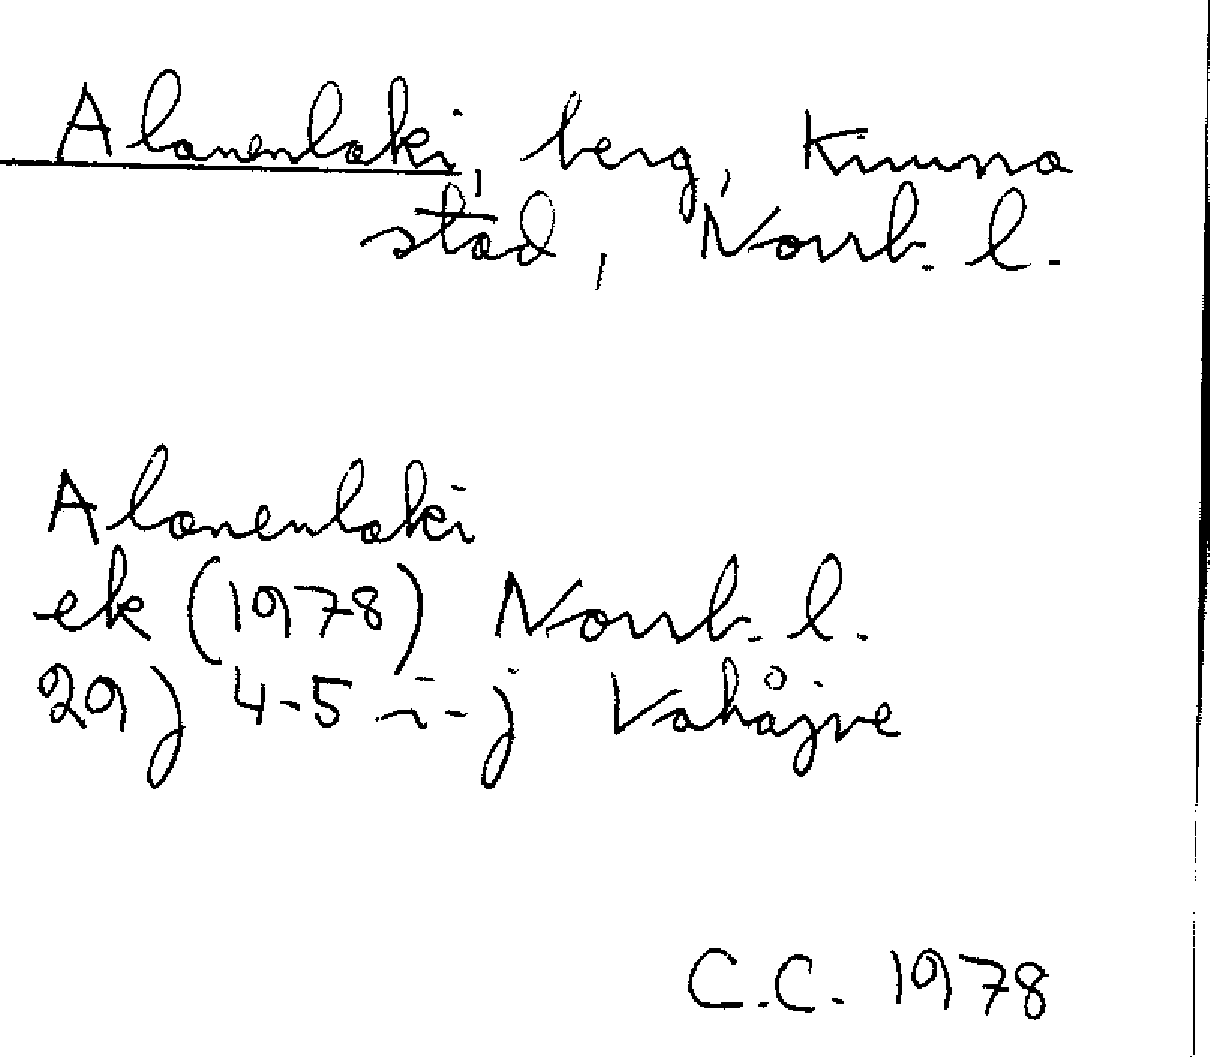 Alanenlaki, berg, Kiruna
stad, Norrb. l.
Alanenlaki
ek (1978) Norrb. l.
29 J 4-5 i-j Vahåjve
C.C. 1978